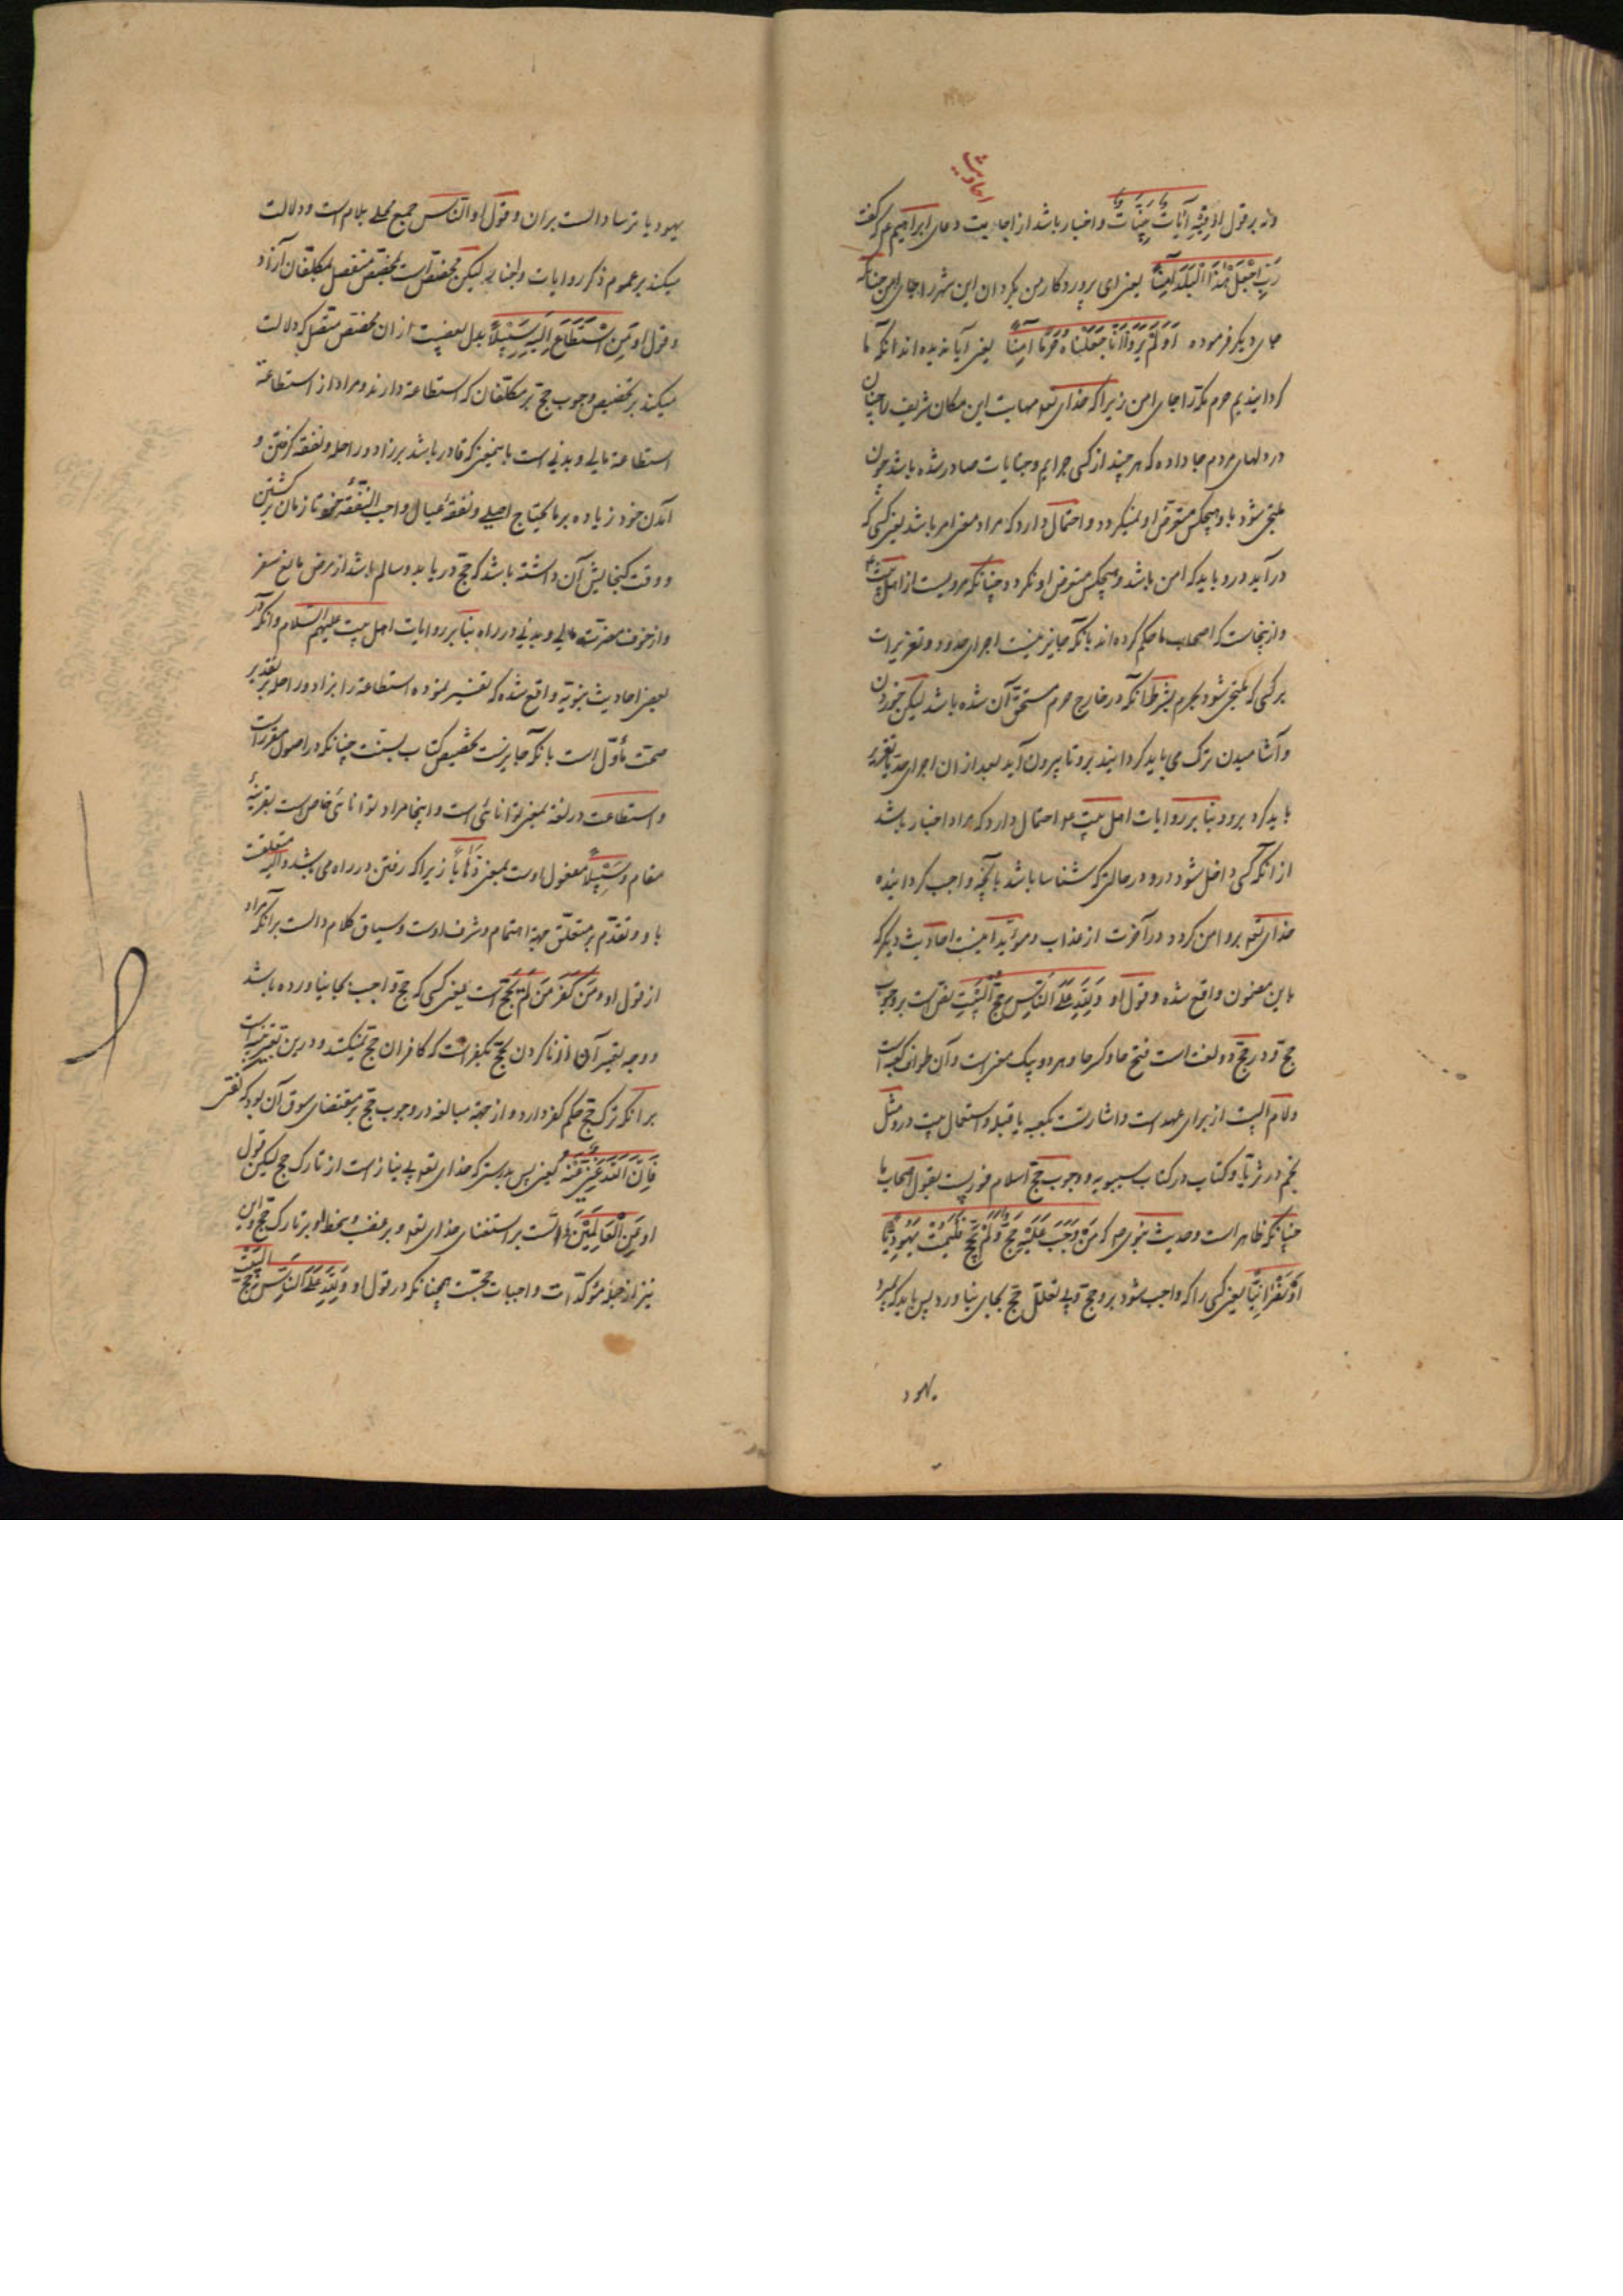 احادیث
ونه بر قول او فِیْهِ آیَاتٌ بَیِّنَاتٌ و اخبار باشد از اجابت دعای ابراهیم ع که گفت
رَبِّ اجْعَلْ هٰذَا الْبَلَدَ آمِنًا یعنی ای پروردکار من بکردان این شهر را جای امن چنانکه
جای دیکر فرموده اَوَلَمْ یَرَوْا اَنَّا جَعَلْنَاهُ حَرَمًا آمِنًا یعنی آیا ندیده اند آنکه ما
کردانیدیم حرم مکه را جای امن زیرا که خدای تعو مهابت این مکان شریف را چنان
در دلهای مردم جا داده که هر چند از کسی جرایم و جنایات صادر شده باشد چون
ملتجی شود باو هیچکس متعرض او نمیکردد و احتمال دارد که مراد معنی امر باشد یعنی کسی که
درآید درو باید که امن باشد و هیچکس متعرض او نکردد چنانکه مرویست از اهل بیت ع
و ازینجاست که اصحاب ما حکم کرده اند بانکه جایز نیست اجرای حدود و تعزیرات
بر کسی که ملتجی شود بحرم بشرط آنکه در خارج حرم مستحق آن شده باشد لیکن خوردن
و آشامیدن ترک می باید کردانید برو تا بیرون آید بعد از ان اجرای حد یا تعزیر
باید کرد برو بنا بر روایات اهل بیت ع و احتمال دارد که مراد اخبار باشد
از آنکه کسی داخل شود درو در حالتی که شناسا باشد بآنچه واجب کردانیده
خدای تعو برو امن کردد در آخرت از عذاب و مؤید اینست احادیث دیکر که
باین مضمون واقع شده و قول او وَلِلّٰهِ عَلَی النَّاسِ حِجُّ الْبَیْتِ نص است بر وجوب
حج و در حج دو لغت است فتح حا و کسر حا و هر دو بیک معنی است و آن طواف کعبه است
و لام البیت از برای عهد است و اشارتست بکعبه یا قبله و استعمال بیت درو مثل
نجم در ثریا و کتاب در کتاب سیبویه و وجوب حج اسلام فوریست بقول اصحاب ما
چنانکه ظاهر است و حدیث نبوی ص که مَنْ وَجَبَ عَلَیْهِ حَجٌّ وَلَمْ یَحُجَّ فَلْیَمُتْ یَهُودِیًّا
اَوْ نَصْرَانِیًّا یعنی کسی را که واجب شود برو حج و بی تعلل حج بجای نیاورد پس باید که بمیرد
یهود
یهود یا ترسا دالست بران و قول او الناس جمع محلی بلام است و دلالت
میکند بر عموم ذکر روایات و اخبار لیکن مخصص است بمخصص منفصل بمکلفان آزاد
و قول او مَنِ اسْتَطَاعَ اِلَیْهِ سَبِیْلًا بدل بعضیت از ان مخصص متصل که دلالت
میکند بر تخصیص وجوب حج بر مکلفان که استطاعة دارند و مراد از استطاعة
استطاعة مالی و بدنی است باینمعنی که قادر باشد بر زاد و راحله و نفقه کرفتن و
آمدن خود زیاده بر مایحتاج اصلی و نفقه عیال واجب النفقه خود تا زمان برکشتن
و وقت کنجایش آن داشته باشد که حج دریابد و سالم باشد از مرض مانع سفر
و از خوف مضرت مالی و بدنی در راه بنا بر روایات اهل بیت علیهم السلام و آنکه در
بعضی احادیث نبویه واقع شده که تفسیر نموده استطاعة را بزاد و راحله بر تقدیر
صحت مأول است بانکه جایزست تخصیص کتاب بسنت چنانکه در اصول مقررست
و استطاعت در لغة بمعنی توانائی است و اینجا مراد توانائی خاص است بقرینهٔ
مقام و سَبِیْلًا مفعول اوست بمعنی ذهابا زیرا که رفتن در راه می باشد و الیه متعلقست
باو و تقدم بر متعلق جهة اهتمام و شرف اوست و سیاق کلام دالست بر آنکه مراد
از قول او وَمَنْ کَفَرَ مَنْ لَمْ یَحُجَّ است یعنی کسی که حج واجب بجا نیاورده باشد
و وجه تعبیر آن از ناکردن حج بکفر آنست که کافران حج نمیکنند و درین تعبیر تنبیه است
بر آنکه ترک حج حکم کفر دارد و از جهة مبالغه در وجوب حج بر مقتضای سوق آن بود که نص
فَاِنَّ اللّٰهَ غَنِیٌّ عَنْهُ یعنی پس بدرستی که خدای تعو بی نیاز است از تارک حج لیکن قول
او عَنِ الْعَالَمِیْنَ دالست بر استغنای خدای تعو و بر غضب و سخط او بر تارک حج و این
نیز از جملهٔ مؤکدات واجبات حجست همچنانکه در قول او وَلِلّٰهِ عَلَی النَّاسِ حِجُّ الْبَیْتِ